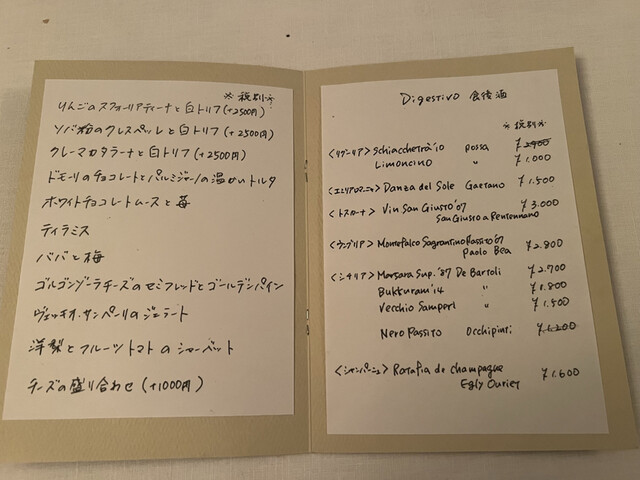 ※税別※
りんごのスフォーリアティーナと白トリフ (+2500円)
ソバ粉のクレスペッレと白トリフ (+2500円)
クレーマカタラーナと白トリフ (+2500円)
ドモーリのチョコレートとパルミジャーノの温かいトルタ
ホワイトチョコレートムースと苺
ティラミス
ババと梅
ゴルゴンゾーラチーズのセミフレッドとゴールデンパイン
ヴェッキオ・サンペーリのジェラート
洋梨とフルーツトマトのシャーベット
チーズの盛り合わせ (+1000円)
Digestivo 食後酒
※税別※
<リグーリア> Schiacchetrà'10 Possa ¥2900
Limoncino 〃 ¥1.000
<エミリアロマーニャ> Danza del Sole Gaetano ¥1.500
<トスカーナ> Vin San Giusto'07 ¥3.000
San Giusto a Rentennano
<ウンブリア> Montefalco Sagrantino Passito'07 ¥2.800
Paolo Bea
<シチリア> Marsara Sup.'87 De Bartoli ¥2.700
Bukkuram'14 〃 ¥1.800
Vecchio Samperi 〃 ¥1.500
Nero Passito Occhipinti ¥1.200
<シャンパーニュ> Ratafia de champagne ¥1.600
Egly Ouriet